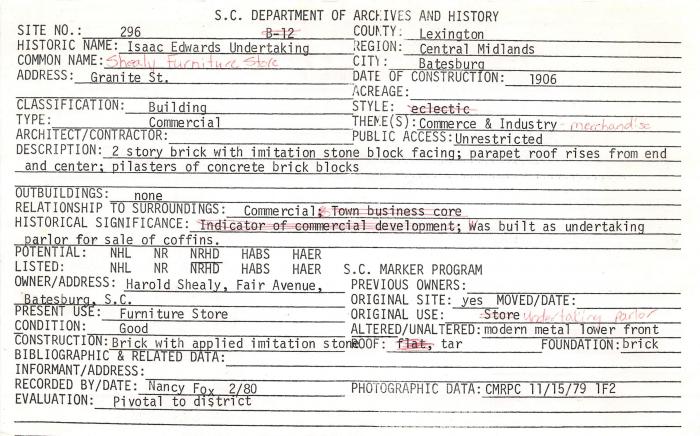 S.C. DEPARTMENT OF ARCHIVES AND HISTORY
SITE NO.: 296 B-12 COUNTY: Lexington
HISTORIC NAME: Isaac Edwards Undertaking REGION: Central Midlands
COMMON NAME: Shealy Furniture Store CITY: Batesburg
ADDRESS: Granite St. DATE OF CONSTRUCTION: 1906
ACREAGE:
CLASSIFICATION: Building STYLE: eclectic
TYPE: Commercial THEME(S): Commerce & Industry - merchandise
ARCHITECT/CONTRACTOR: PUBLIC ACCESS: Unrestricted
DESCRIPTION: 2 story brick with imitation stone block facing; parapet roof rises from end
and center; pilasters of concrete brick blocks
OUTBUILDINGS: none
RELATIONSHIP TO SURROUNDINGS: Commercial; Town business core
HISTORICAL SIGNIFICANCE: Indicator of commercial development; Was built as undertaking
parlor for sale of coffins.
POTENTIAL: NHL NR NRHD HABS HAER
LISTED: NHL NR NRHD HABS HAER S.C. MARKER PROGRAM
OWNER/ADDRESS: Harold Shealy, Fair Avenue, PREVIOUS OWNERS:
Batesburg, S.C. ORIGINAL SITE: yes MOVED/DATE:
PRESENT USE: Furniture Store ORIGINAL USE: Store undertaking parlor
CONDITION: Good ALTERED/UNALTERED: modern metal lower front
CONSTRUCTION: Brick with applied imitation stone ROOF: flat, tar FOUNDATION: brick
BIBLIOGRAPHIC & RELATED DATA:
INFORMANT/ADDRESS:
RECORDED BY/DATE: Nancy Fox 2/80 PHOTOGRAPHIC DATA: CMRPC 11/15/79 1F2
EVALUATION: Pivotal to district